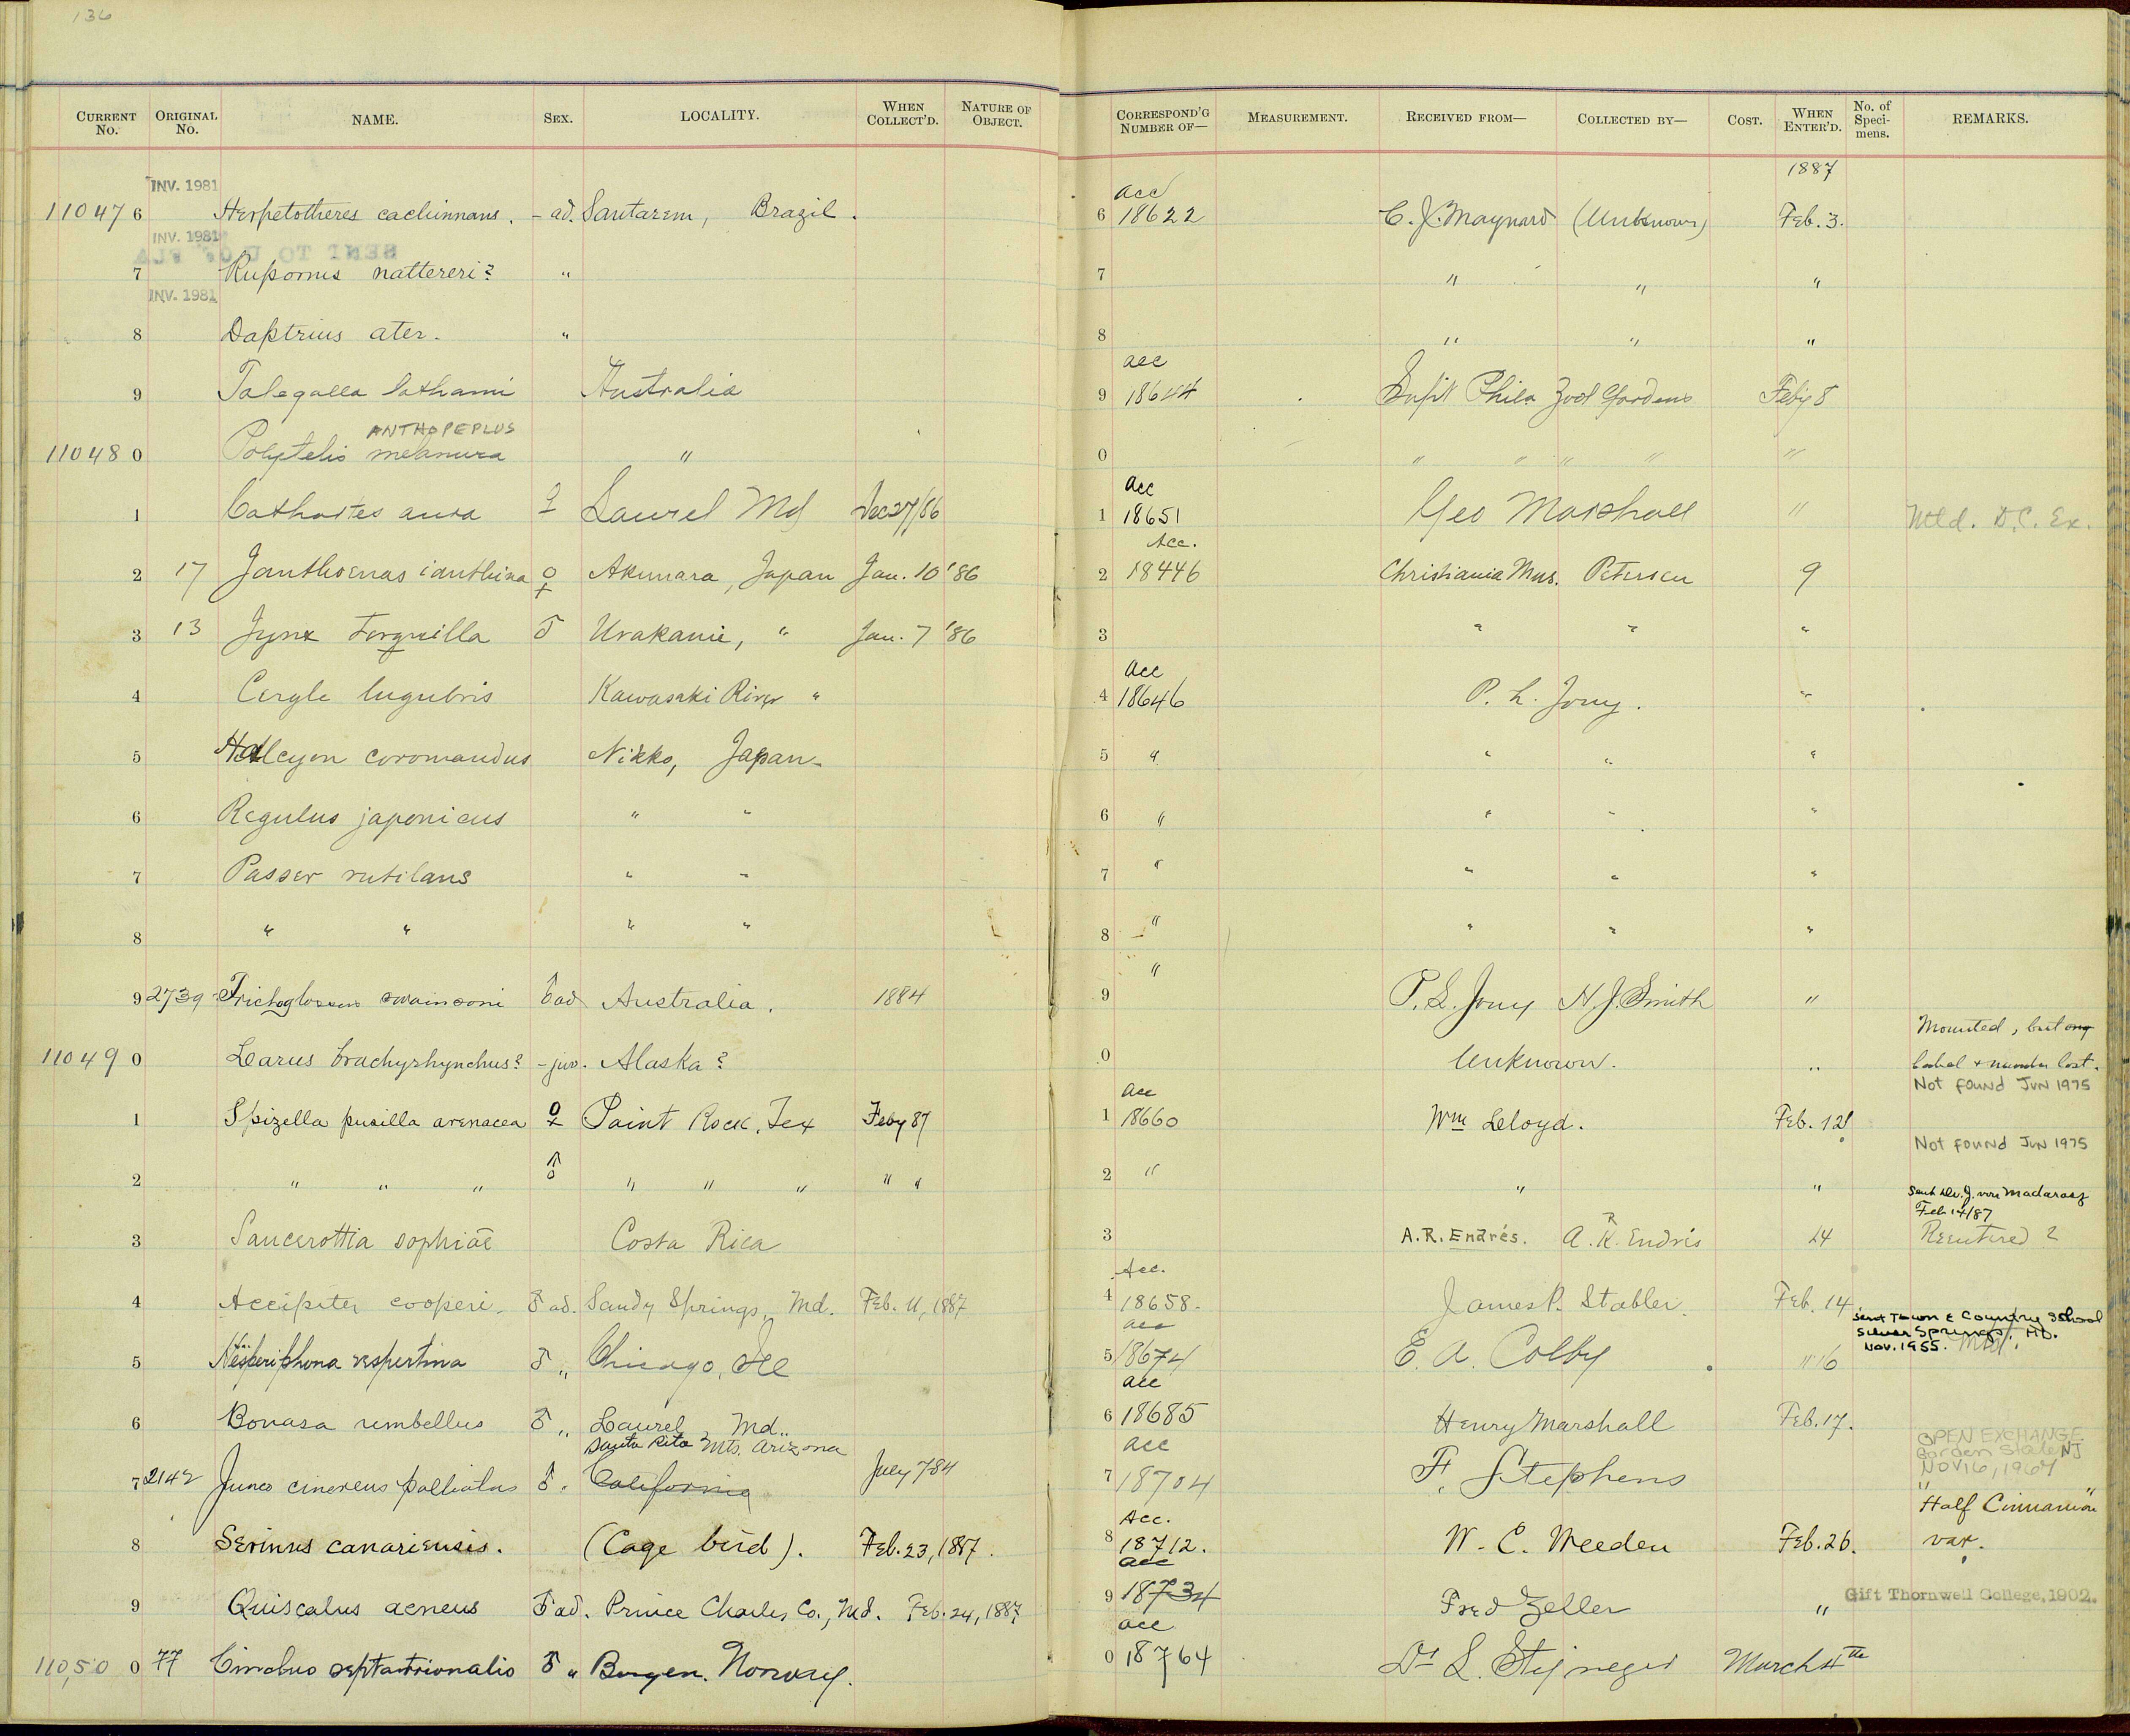 136
CURRENT No. ORIGINAL No. NAME. SEX. LOCALITY. WHEN COLLECT'D. NATURE OF OBJECT. CORRESPOND'G NUMBER OF— MEASUREMENT. RECEIVED FROM— COLLECTED BY— COST. WHEN ENTER'D. No. of Specimens. REMARKS.
1887
INV. 1981 acc
110476 Herpetotheres cachinnans. – ad. Santarem, Brazil. 6 18622 C. J. Maynard (Unknown) Feb. 3.
INV. 1981
SENT TO U. OF FLA
7 Rupornis nattereri? " 7 " " "
INV. 1981
8 Daptrius ater. " 8 " " "
acc
9 Talegalla lathami Australia 9 18644 Supt Phila Zool Gardens Feby 8
ANTHOPEPLUS
110480 Polytelis melanura " 0 " " " " "
acc
1 Cathartes aura ♀ Laurel Md Dec 27/86 1 18651 Geo Marshall " Mtd. D.C. Ex.
Acc.
2 17 Janthoenas ianthina ♀ Akunara, Japan Jan. 10 '86 2 18446 Christiania Mus. Petersen 9
3 13 Jynx torquilla ♂ Urakami, " Jan. 7 '86 3 " " "
acc
4 Ceryle lugubris Kawasaki River " 4 18646 P. L. Jouy. "
5 Halcyon coromandus Nikko, Japan 5 " " " "
6 Regulus japonicus " " 6 " " " "
7 Passer rutilans " " 7 " " " "
8 " " " " 8 " " " "
9 2739 Trichoglossus swainsoni ♂ ad Australia. 1884 9 " P. L. Jouy H. J. Smith "
Mounted, but org
110490 Larus brachyrhynchus? – juv. Alaska? 0 Unknown. " label & number lost.
acc Not found JUN 1975
1 Spizella pusilla arenacea ♀ Paint Rock, Tex Feby 87 1 18660 Wm Lloyd. Feb. 12
Not found JUN 1975
2 " " " ♂ " " " " " 2 " " "
Sent Dr. J. von Madarasz
Feb 14/87
3 Saucerottia sophiæ Costa Rica 3 A. R. Endrés. A. R. Endrés 14 Reentered ?
Acc.
4 Accipiter cooperi. ♂ ad. Sandy Springs, Md. Feb. 11, 1887 4 18658. James P. Stabler. Feb. 14
acc Sent Town & Country School
Silver Springs, MD.
Nov. 1955. Mtd.
5 Hesperiphona vespertina ♂ " Chicago, Ill 5 18674 E. A. Colby " 16
acc
6 Bonasa umbellus ♂ " Laurel, Md.. 6 18685 Henry Marshall Feb. 17.
Santa Rita Mts. Arizona acc OPEN EXCHANGE
Garden State NJ
NOV 16, 1967
7 2142 Junco cinereus palliatus ♂. California July 7 84 7 18704 F. Stephens
Acc. "Half Cinnamon"
8 Serinus canariensis. (Cage bird). Feb. 23, 1887. 8 18712. W. C. Weeden Feb. 26. var.
acc
9 Quiscalus aeneus ♂ ad. Prince Charles Co., Md. Feb. 24, 1887 9 18734 Fred Zeller " Gift Thornwell College, 1902.
acc
110,500 77 Cinclus septentrionalis ♂ " Bergen. Norway. 0 18764 Dr L. Stejneger March 4th